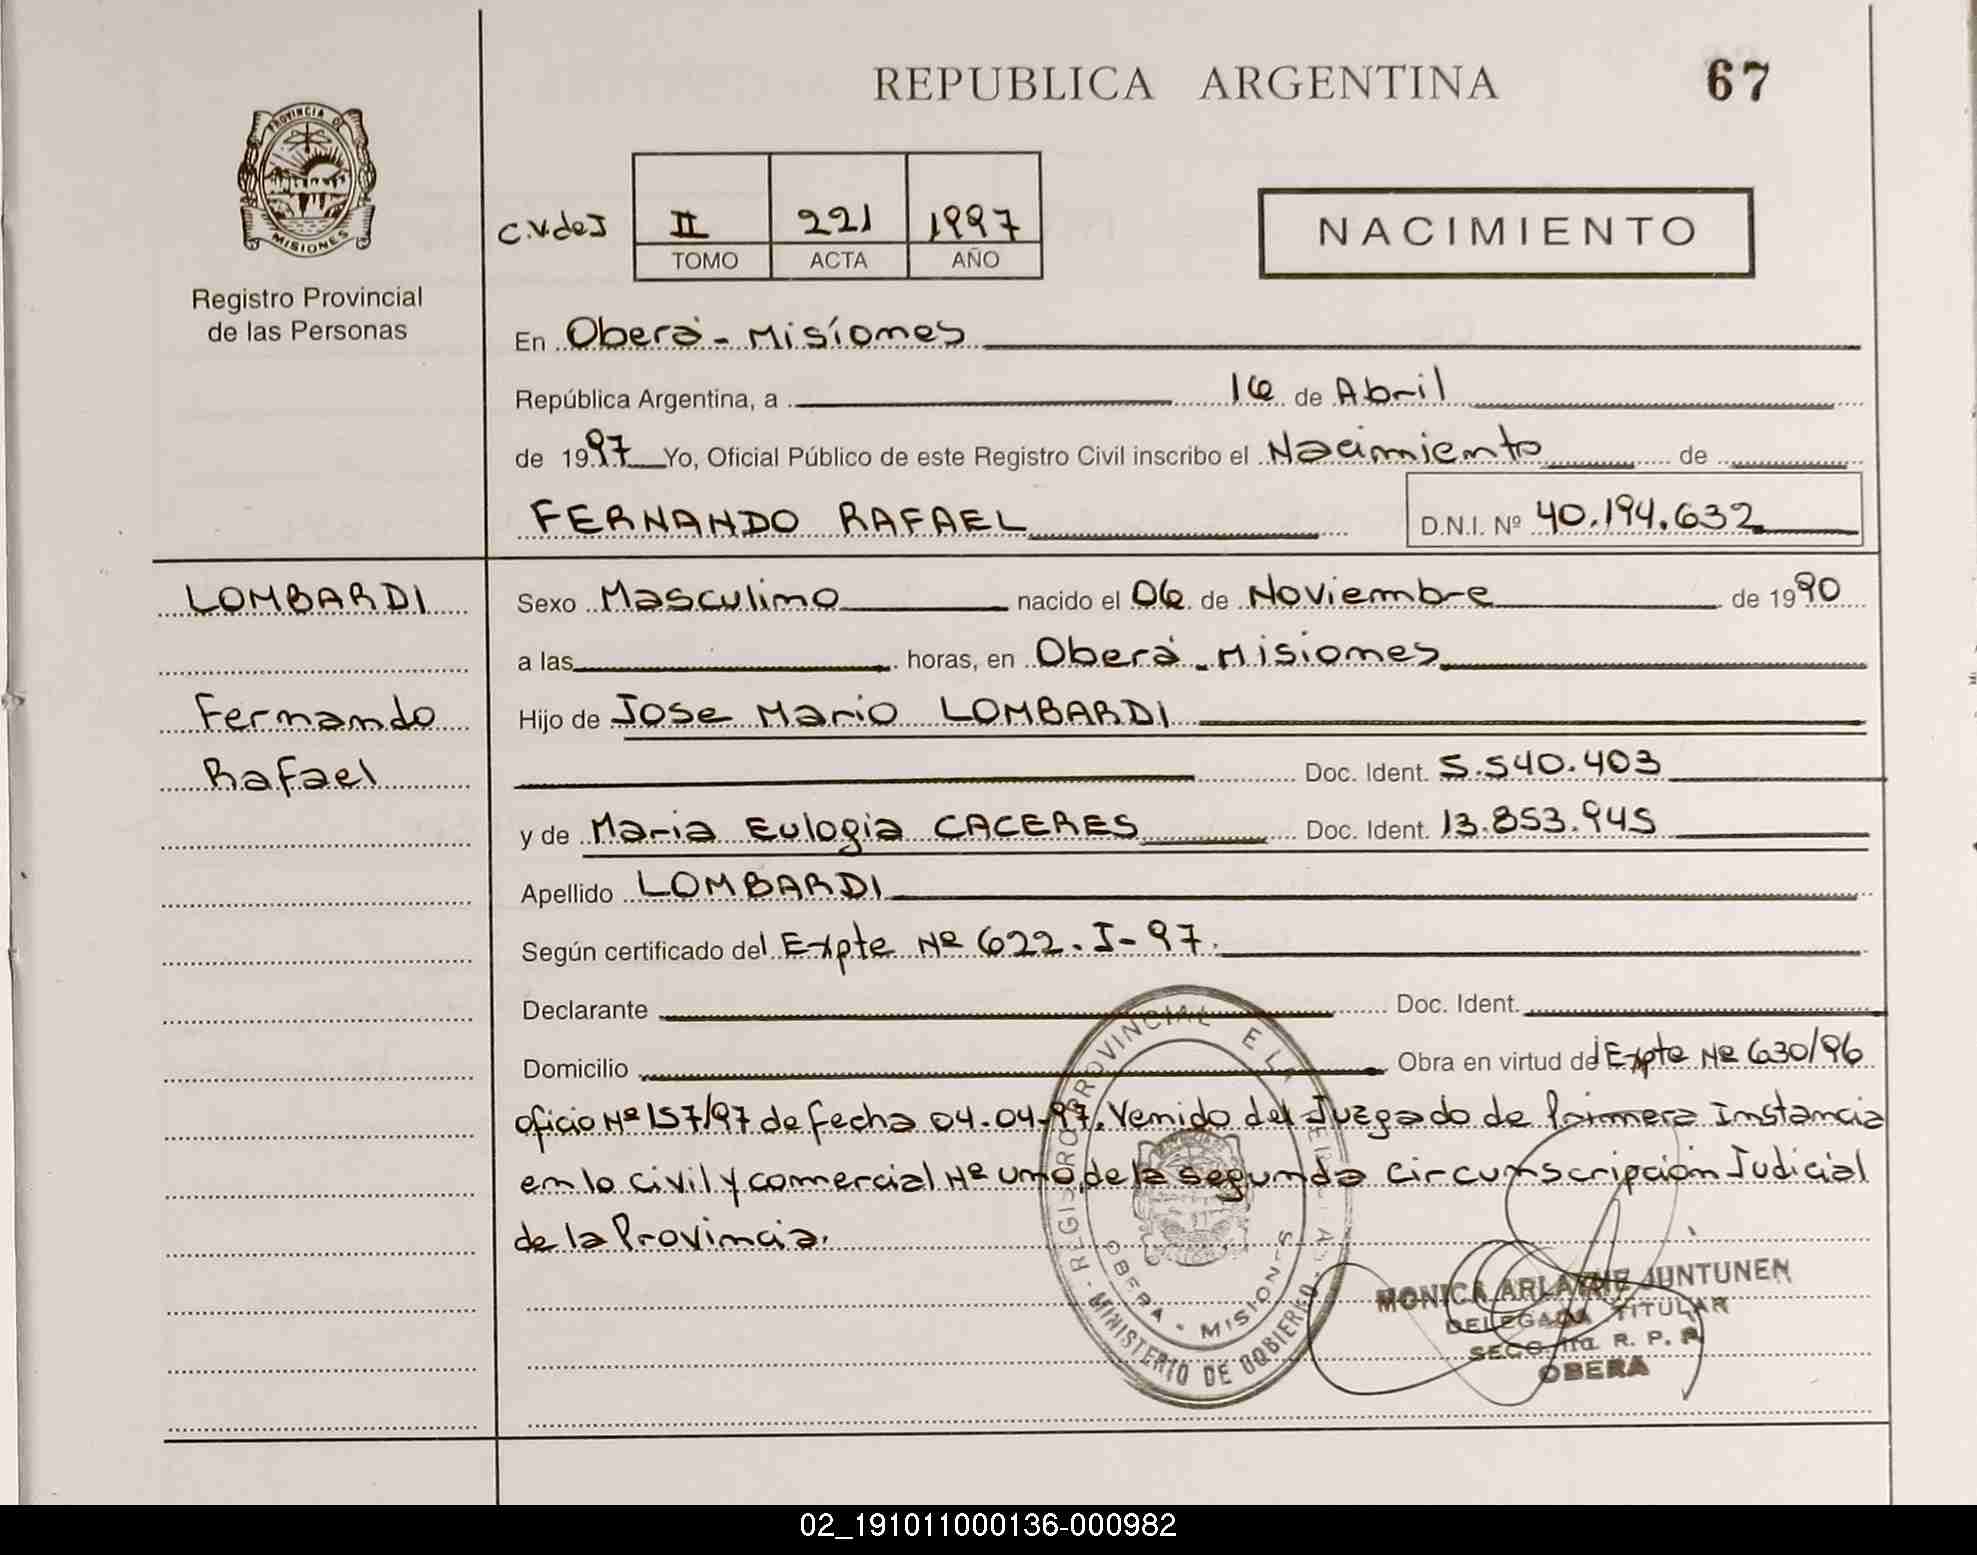 REPUBLICA ARGENTINA
67
PROVINCIA DE
MISIONES
Registro Provincial
de las Personas
C.V.deJ
II 221 1997
TOMO ACTA AÑO
NACIMIENTO
En Oberá - Misiones
República Argentina, a 16 de Abril
de 1997 Yo, Oficial Público de este Registro Civil inscribo el Nacimiento de
FERNANDO RAFAEL D.N.I. Nº 40.194.632
LOMBARDI
Sexo Masculino nacido el 06 de Noviembre de 1990
a las horas, en Oberá - Misiones
Fernando
Hijo de Jose Mario LOMBARDI
Rafael
Doc. Ident. 5.540.403
y de Maria Eulogia CACERES Doc. Ident. 13.853.945
Apellido LOMBARDI
Según certificado del Expte Nº 622-I-97.
Declarante Doc. Ident.
Domicilio Obra en virtud del Expte Nº 630/96
oficio Nº 157/97 de fecha 04-04-97. Venido del Juzgado de Primera Instancia
en lo civil y comercial Nº uno, de la segunda circunscripción Judicial
de la Provincia.
REGISTRO PROVINCIAL
OBERA - MISIONES
MINISTERIO DE GOBIERNO
MONICA JUNTUNEN
DELEGADA TITULAR
R. P. P.
OBERA
02_191011000136-000982